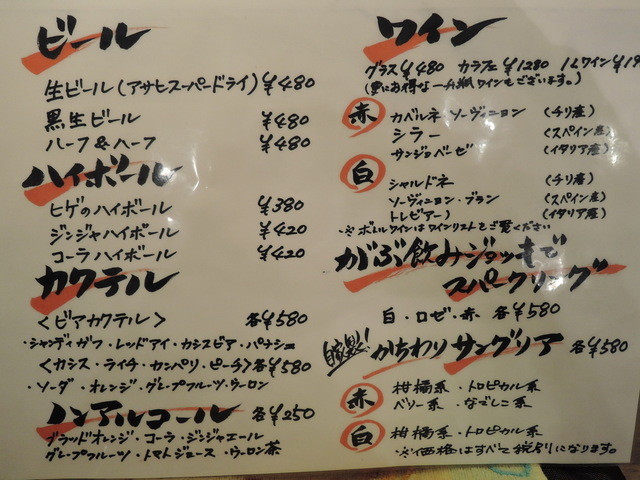 ビール
生ビール(アサヒスーパードライ) ¥480
黒生ビール ¥480
ハーフ&ハーフ ¥480
ハイボール
ヒゲのハイボール ¥380
ジンジャハイボール ¥420
コーラハイボール ¥420
カクテル
<ビアカクテル> 各¥580
・シャンディガフ・レッドアイ・カシスビア・パナシェ
<カシス・ライチ・カンパリ・ピーチ>各¥580
・ソーダ・オレンジ・グレープフルーツ・ウーロン
ノンアルコール 各¥250
ブラッドオレンジ・コーラ・ジンジャエール
グレープフルーツ・トマトジュース・ウーロン茶
ワイン
グラス¥480 カラフェ¥1280 1Lワイン¥19
(更にお得な一升瓶ワインもございます。)
赤
カベルネソーヴィニョン (チリ産)
シラー (スペイン産)
サンジョベーゼ (イタリア産)
白
シャルドネ (チリ産)
ソーヴィニョン・ブラン (スペイン産)
トレビアーノ (イタリア産)
※ボトルワインはワインリストをご覧ください
がぶ飲みジョッキまで
スパークリング
白・ロゼ・赤 各¥580
自家製! かちわりサングリア 各¥580
赤
柑橘系・トロピカル系
ベリー系・なでしこ系
白
柑橘系・トロピカル系
※価格はすべて税別になります。